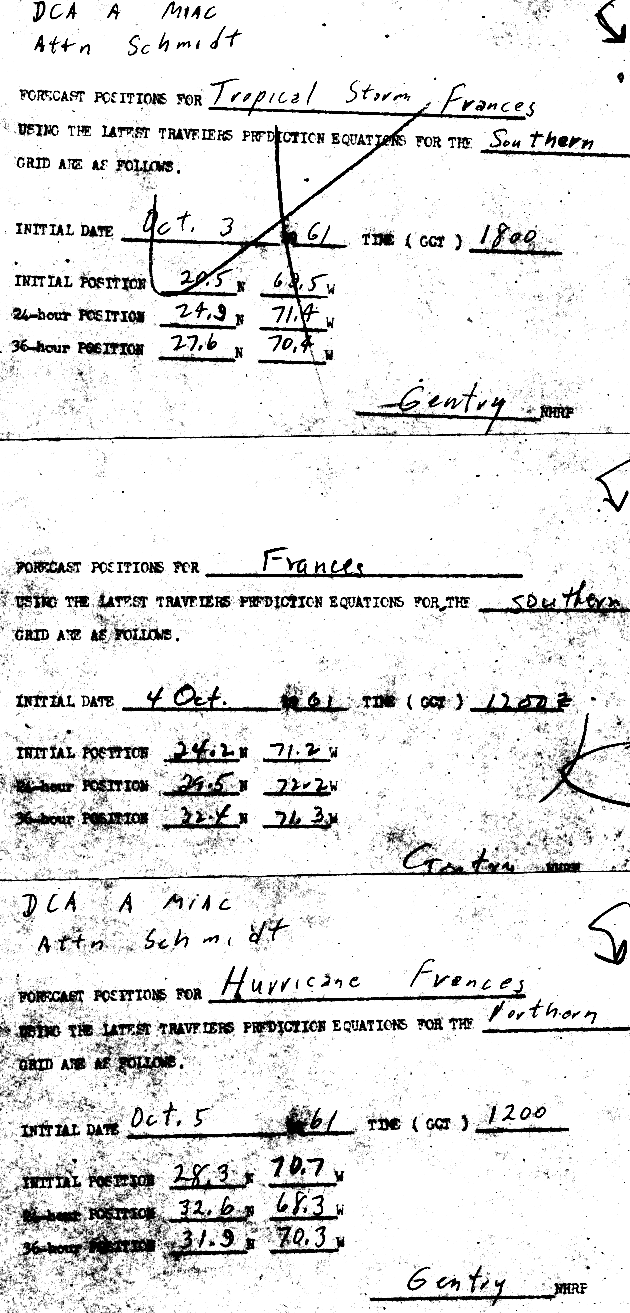 DCA A MIAC
Attn Schmidt
FORECAST POSITIONS FOR Tropical Storm Frances
USING THE LATEST TRAVELERS PREDICTION EQUATIONS FOR THE Southern
GRID ARE AS FOLLOWS.
INITIAL DATE Oct. 3 61 TIME ( GCT ) 1800
INITIAL POSITION 20.5 N W
24-hour POSITION 24.9 N 71.4 W
36-hour POSITION 27.6 N 70.4 W
Gentry NHRP
FORECAST POSITIONS FOR Frances
USING THE LATEST TRAVELERS PREDICTION EQUATIONS FOR THE Southern
GRID ARE AS FOLLOWS.
INITIAL DATE 4 Oct. 61 TIME ( GCT ) 1200 Z
INITIAL POSITION 24.2 N 71.2 W
24-hour POSITION 29.5 N 72.2 W
36-hour POSITION 32.4 N W
Gentry NHRP
DCA A MIAC
Attn Schmidt
FORECAST POSITIONS FOR Hurricane Frances
USING THE LATEST TRAVELERS PREDICTION EQUATIONS FOR THE Northern
GRID ARE AS FOLLOWS.
INITIAL DATE Oct. 5 61 TIME ( GCT ) 1200
INITIAL POSITION 28.3 N 70.7 W
24-hour POSITION 32.6 N 68.3 W
36-hour POSITION 31.9 N 70.3 W
Gentry NHRP